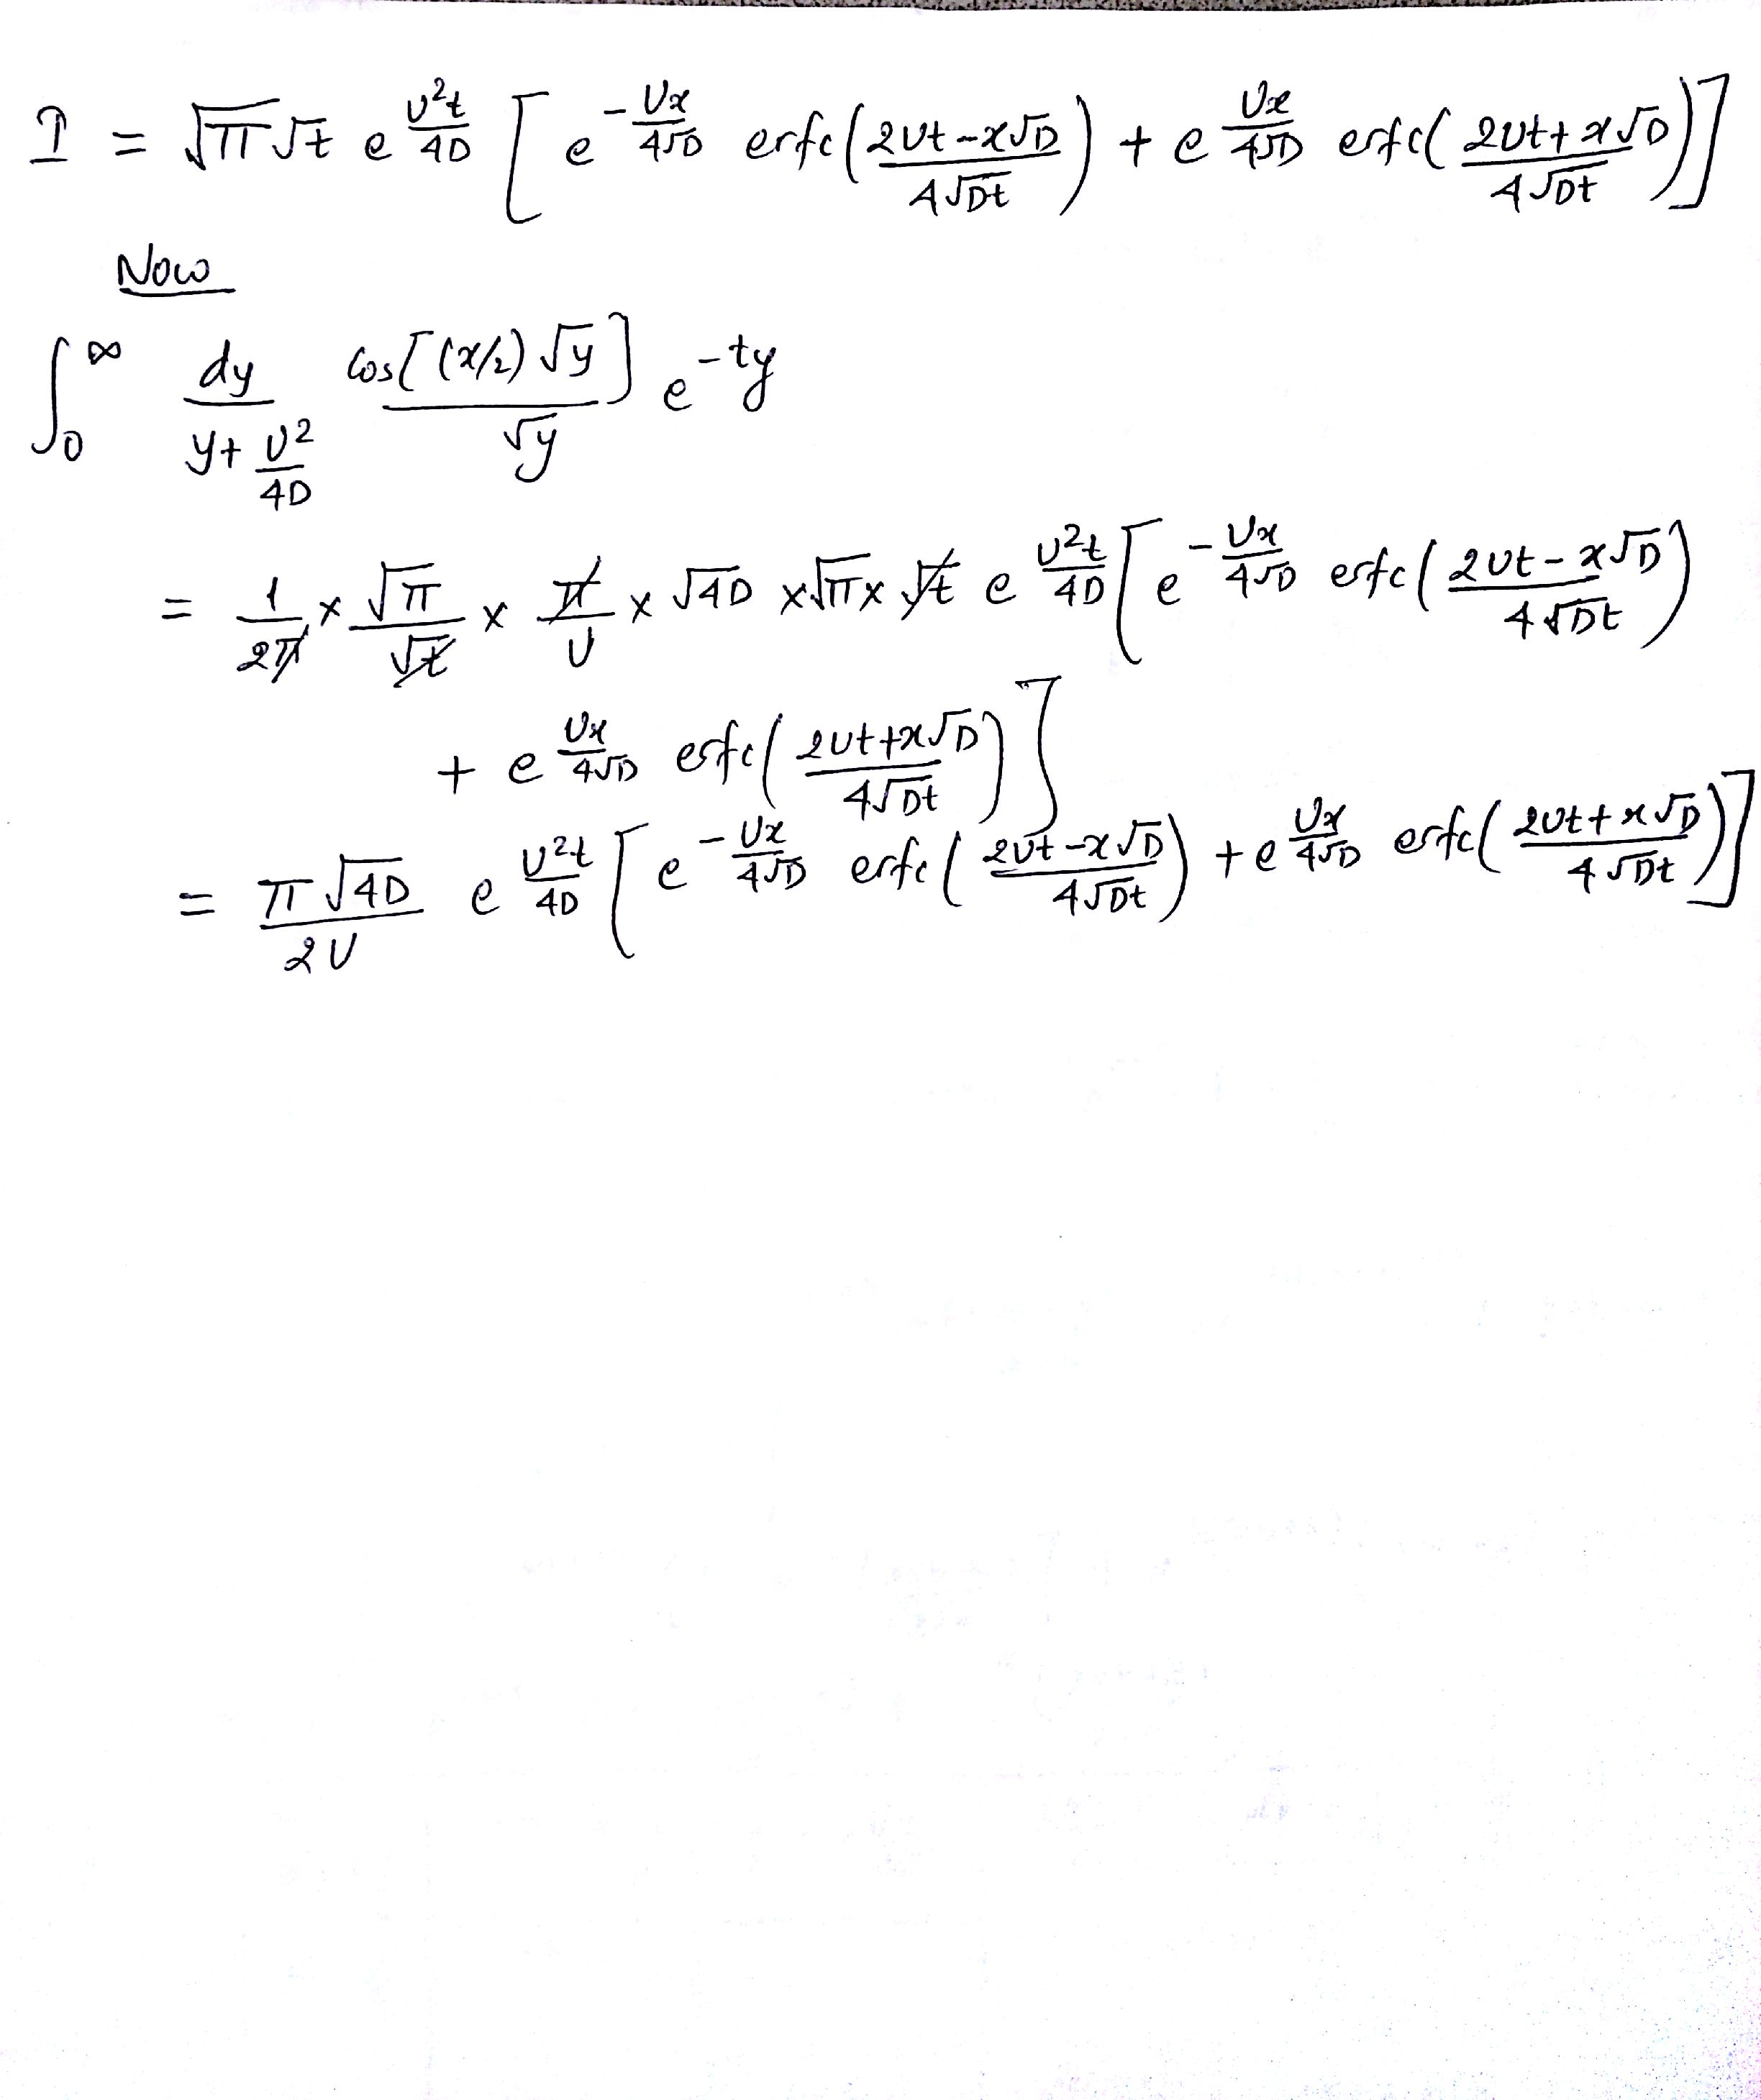 I = √π √t e^{U²t/4D} [ e^{-Ux/4√D} erfc( (2Ut-x√D)/(4√Dt) ) + e^{Ux/4√D} erfc( (2Ut+x√D)/(4√Dt) ) ]
Now
∫_0^∞ dy/(y+U²/4D) cos[(x/2)√y]/√y e^{-ty}
= 1/(2π) × √π/√t × π/U × √4D × √π × √t e^{U²t/4D} [ e^{-Ux/4√D} erfc( (2Ut-x√D)/(4√Dt) )
+ e^{Ux/4√D} erfc( (2Ut+x√D)/(4√Dt) ) ]
= π√4D/(2U) e^{U²t/4D} [ e^{-Ux/4√D} erfc( (2Ut-x√D)/(4√Dt) ) + e^{Ux/4√D} erfc( (2Ut+x√D)/(4√Dt) ) ]